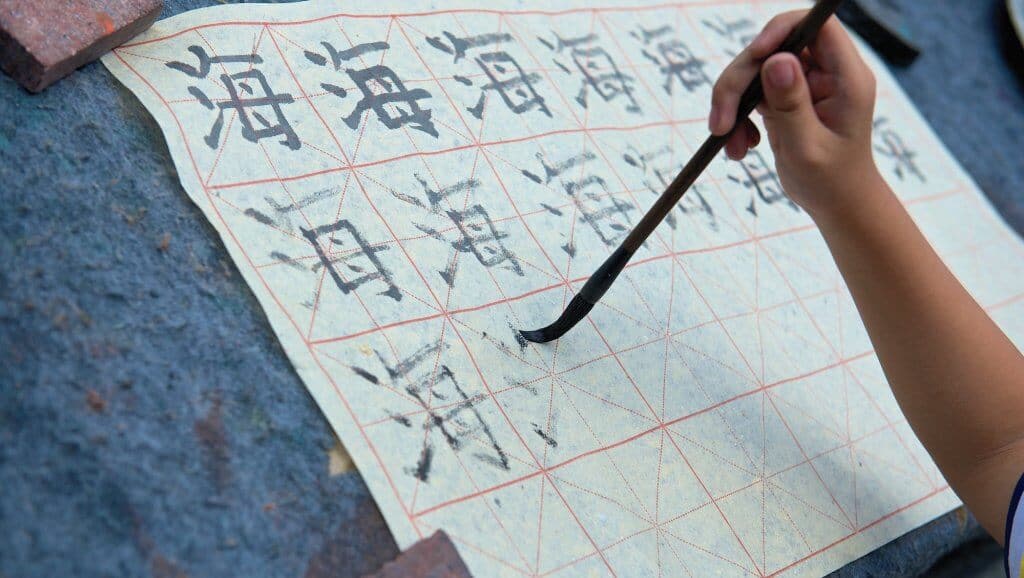 海海海海海
海海海海
海